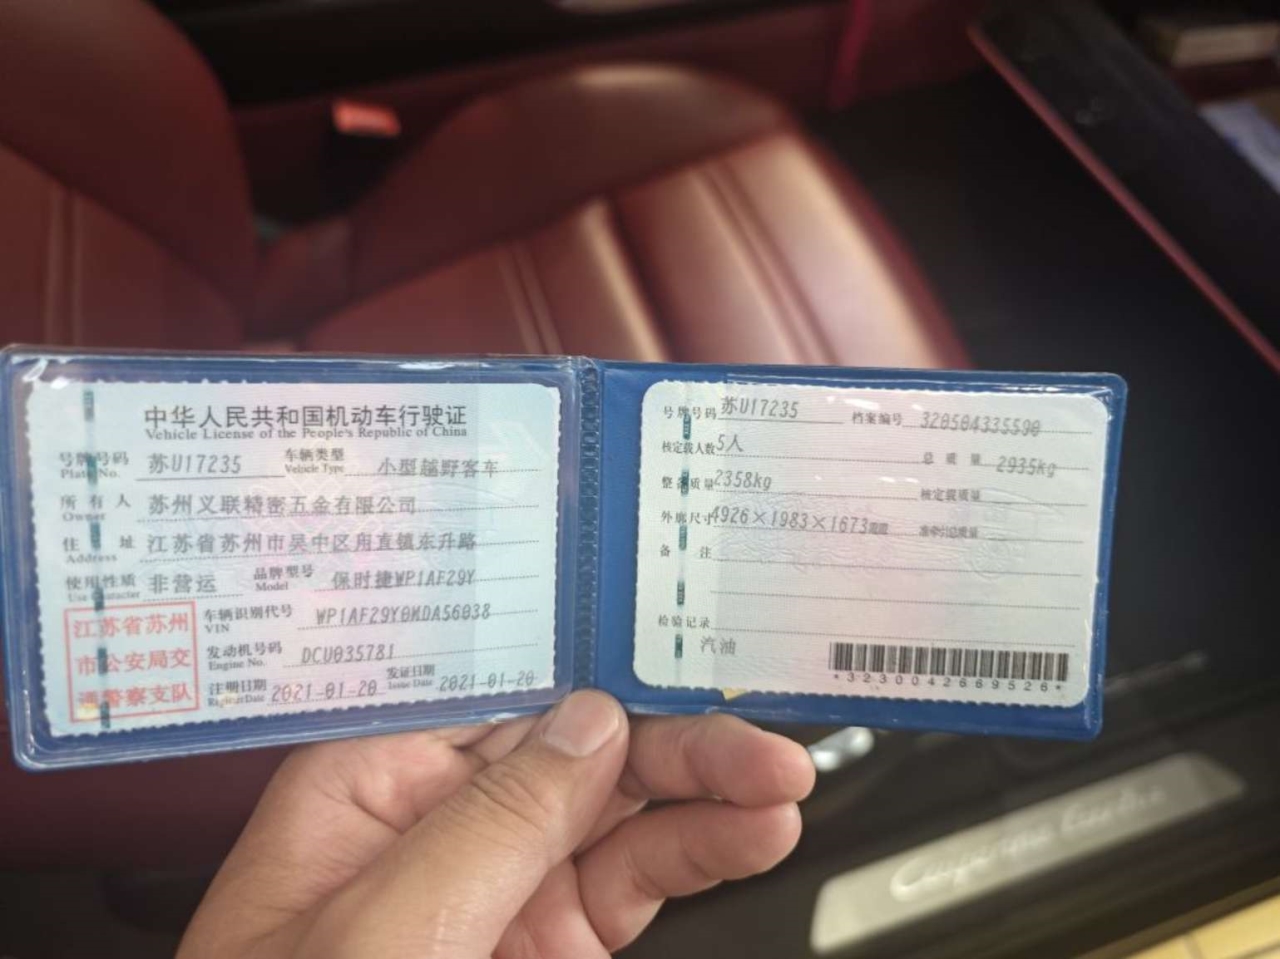 中华人民共和国机动车行驶证
Vehicle License of the People's Republic of China
号牌号码 苏U17235 车辆类型 小型越野客车
Plate No. Vehicle Type
所有人 苏州义联精密五金有限公司
Owner
住址 江苏省苏州市吴中区甪直镇东升路
Address
使用性质 非营运 品牌型号 保时捷WP1AF29Y
Use Character Model
江苏省苏州
市公安局交
通警察支队
车辆识别代号 WP1AF29Y0MDA56038
VIN
发动机号码 DCU035781
Engine No.
注册日期 2021-01-20 发证日期 2021-01-20
Register Date Issue Date
号牌号码 苏U17235 档案编号 320504335590
核定载人数 5人 总质量 2935kg
整备质量 2358kg 核定载质量
外廓尺寸 4926×1983×1673mm 准牵引总质量
备注
检验记录
汽油
*3230042669526*